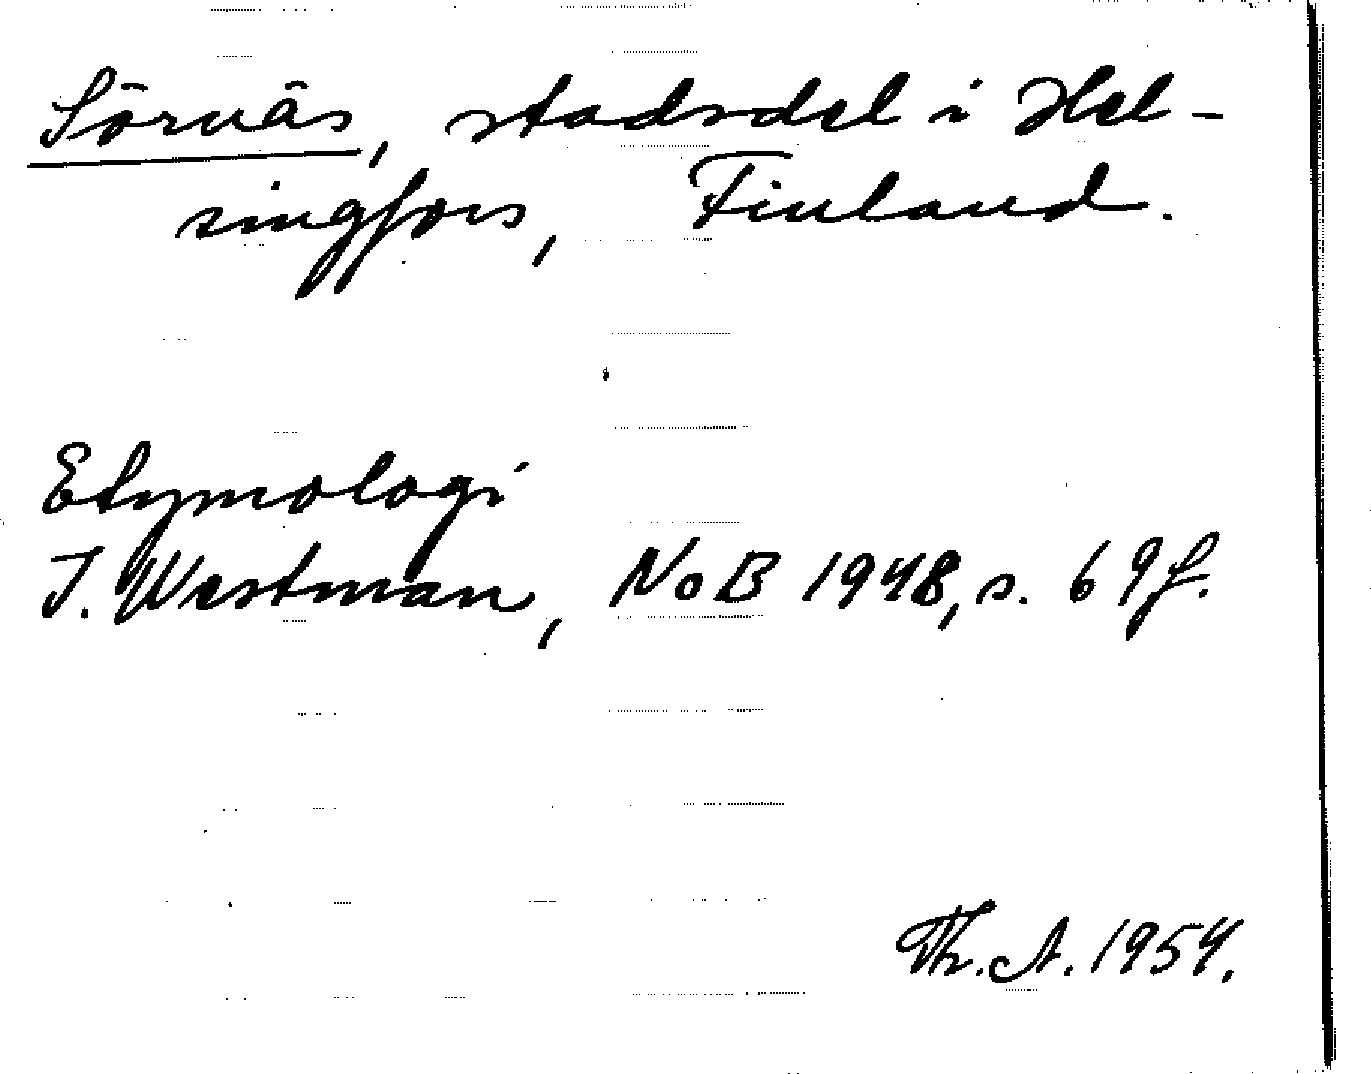 Sörnäs, stadsdel i Hel-
singfors, Finland.
Etymologi
I. Westman, NoB 1948, s. 69f.
Th. A. 1954.